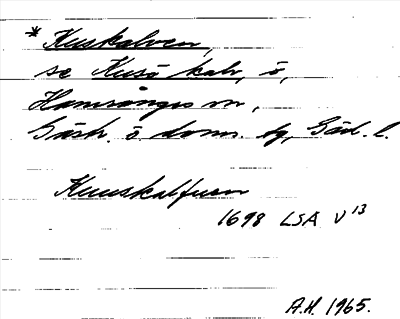 * Kuskalven,
se Kusö kalv, ö,
Hamrånges sn,
Gästr. ö. doms. tg, Gävl. l.
Kuuskalfuen
1698 LSA V 13
A.H. 1965.